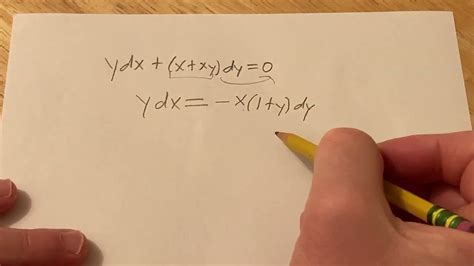 ydx + (x+xy)dy=0
ydx = -x(1+y)dy